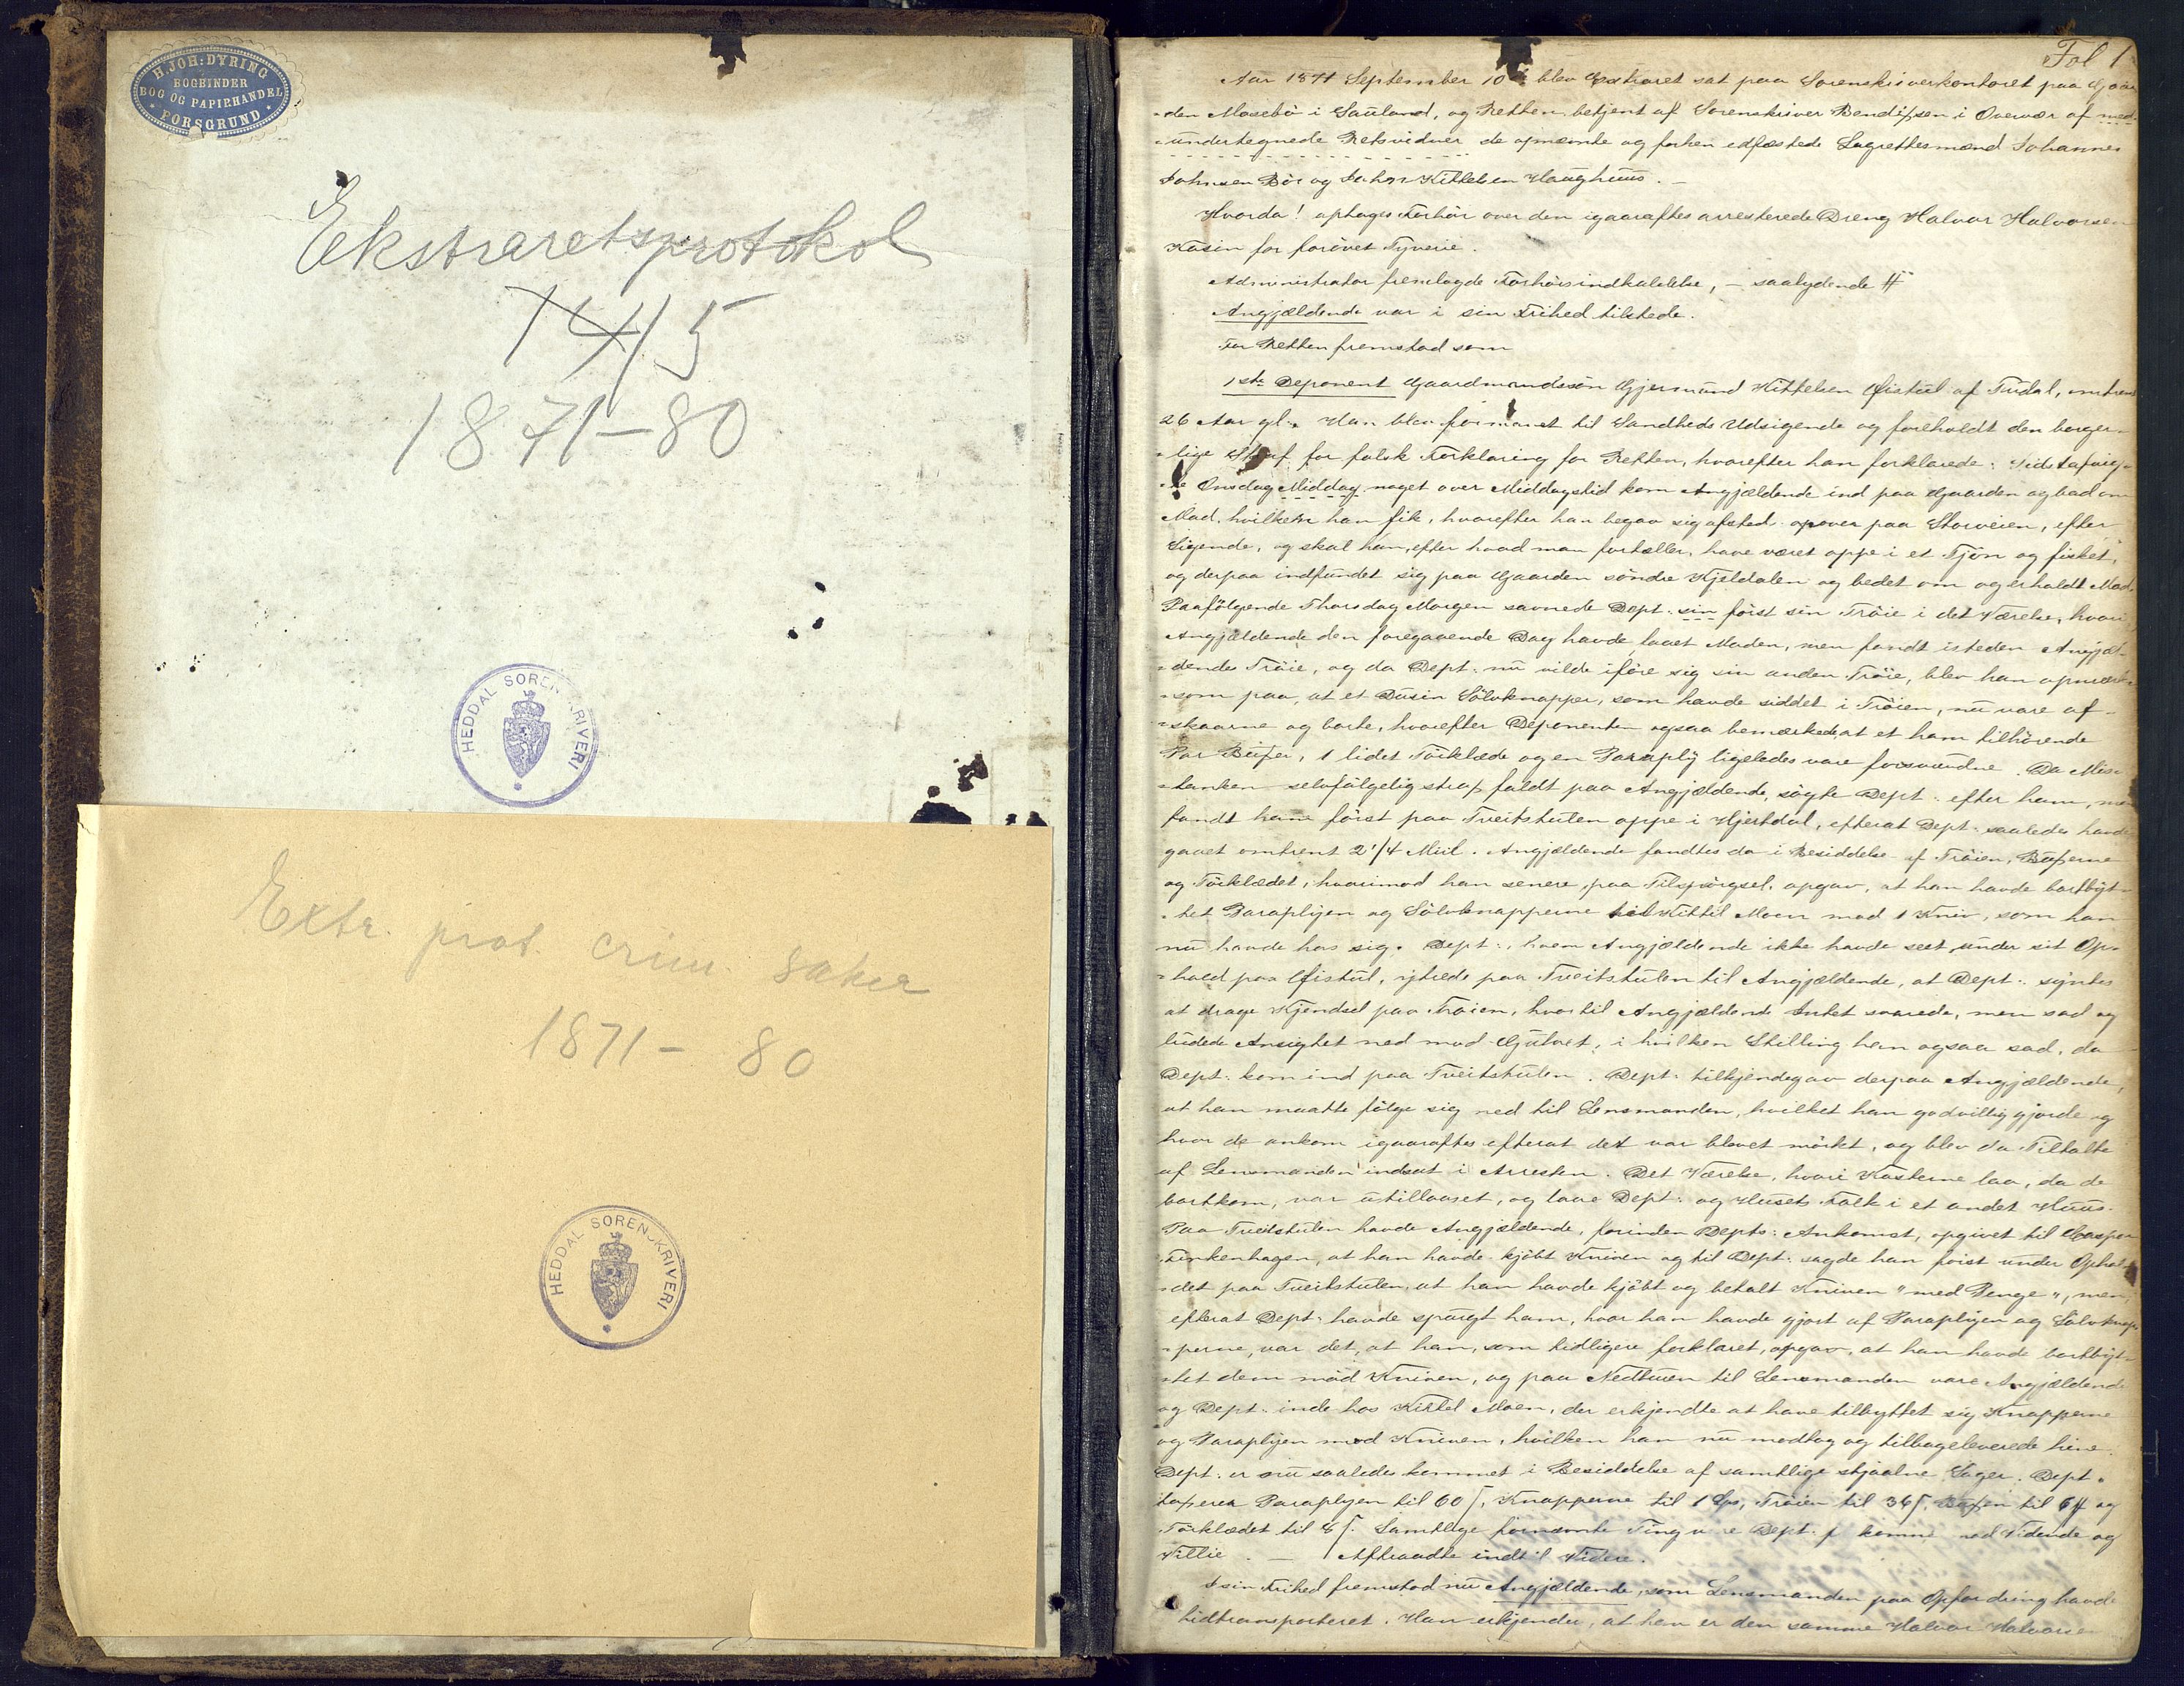 H. JOH: DYRING
BOGBINDER
BOG OG PAPIRHANDEL
PORSGRUND
Ekstraretsprotokol
14/5
1871-80
HEDDAL SORENSKRIVERI
Extr. prot. crim. saker
1871- 80
HEDDAL SORENSKRIVERI
Fol 1
Aar 1871 September 10de blev Extraret sat paa Sorenskriverkontoret paa Gaar-
den Mosebö i Sauland, og Retten betjent af Sorenskriver Bendixsen i Overvær af med-
undertegnede Retsvidner de opnævnte og forhen edfæstede Lagrettesmænd Johannes
Johnsen Bör og John Kittelsen Haughuus. -
Hvorda! optoges Forhör over den igaaraftes arresterede Dreng Halvor Halvorsen
Kåsin for forövet Tyverie.
Administrator fremlagde Forhörsindkaldelse, - saalydende #
Angjældende var i sin Frihed tilstede.
For Retten fremstod som
1ste Deponent Gaardmandssön Gjermund Kittelsen Öistul af Tudal, omtrent
26 Aar gl. Han blev formanet til Sandheds Udsigende og foreholdt den borger-
lige Straf for falsk Forklaring for Retten, hvorefter han forklarede: Sidstafvig-
te Onsdag Middag noget over Middagstid kom Angjældende ind paa Gaarden og bad om
Mad, hvilken han fik, hvorefter han begav sig afsted opover paa Storveien, efter
Sigende, og skal han, efter hvad man fortæller, have været oppe i et Tjön og fisket,
og derpaa indfundet sig paa Gaarden söndre Kjeldalen og bedet om og erholdt Mad.
Paafölgende Thorsdag Morgen savnede Dept. sin först sin Tröie i det Værelse, hvori
Angjældende den foregaaende Dag havde faaet Maden, men fandt isteden Angjæl-
dendes Tröie, og da Dept. nu vilde iföre sig sin anden Tröie, blev han opmærk-
som paa, at et Dusin Sölvknapper, som havde siddet i Tröien, nu vare af-
skaarne og borte, hvorefter Deponenten ogsaa bemærkede, at et ham tilhörende
Par Buxer, 1 lidet Törklæde og en Paraply ligeledes vare forsvundne. Da Mis-
tanken selvfölgelig strax faldt paa Angjældende, sögte Dept. efter ham, men
fandt ham först paa Tveitstulen oppe i Hjertdal, efterat Dept. saaledes havde
gaaet omtrent 2 1/4 Miil. Angjældende fandtes da i Besiddelse af Tröien, Buxerne
og Törklædet, hvorimod han senere, paa Tilspörgsel, opgav, at han havde bortbyt-
tet Paraplyen og Sölvknapperne til Kittil Moen mod 1 Kniv, som han
nu havde hos sig. Dept., hvem Angjældende ikke havde seet under sit Op-
hold paa Öistul, ytrede paa Tveitstulen til Angjældende, at Dept. syntes
at drage Kjendsel paa Tröien, hvortil Angjældende Intet svarede, men sad og
ludede Ansigtet ned mod Gulvet, i hvilken Stilling han ogsaa sad, da
Dept. kom ind paa Tveitstulen. Dept. tilkjendegav derpaa Angjældende,
at han maatte fölge sig ned til Lensmanden, hvilket han godvillig gjorde og
hvor de ankom igaaraftes efterat det var blevet mörkt, og blev da Tiltalte
af Lensmanden indsat i Arresten. Det Værelse, hvori Kosterne laa, da de
bortkom, var utillaaset, og laae Dept. og Husets Folk i et andet Huus.
Paa Tveitstulen havde Angjældende, forinden Depts: Ankomst, opgivet til Casper
Finkenhagen, at han havde kjöbt Kniven og til Dept. sagde han först under Ophol-
det paa Tveitstulen, at han havde kjöbt og betalt Kniven "med Penge", men,
efterat Dept. havde spurgt ham, hvor han havde gjort af Paraplyen og Sölvknap-
perne, var det, at han, som tidligere forklaret, opgav, at han havde bortbyt-
tet dem mod Kniven, og paa Nedturen til Lensmanden vare Angjældende
og Dept. inde hos Kittel Moen, der erkjendte at have tilbyttet sig Knapperne
og Paraplyen mod Kniven, hvilken han nu modtog og tilbageleverede hine.
Dept. er nu saaledes kommet i Besiddelse af samtlige stjaalne Sager. Dept.
taxerer Paraplyen til 60 ſ, Knapperne til 1 Spd, Tröien til 36 ſ, Buxen til og
Törklædet til 8 ſ. Samtlige fornævnte Ting vare Dept. frakomne mod Vidende og
Villie. - Aftraadte indtil Videre.
I sin Frihed fremstod nu Angjældende, som Lensmanden paa Opfordring havde
hidtransporteret. Han erkjender, at han er den samme Halvor Halvorsen